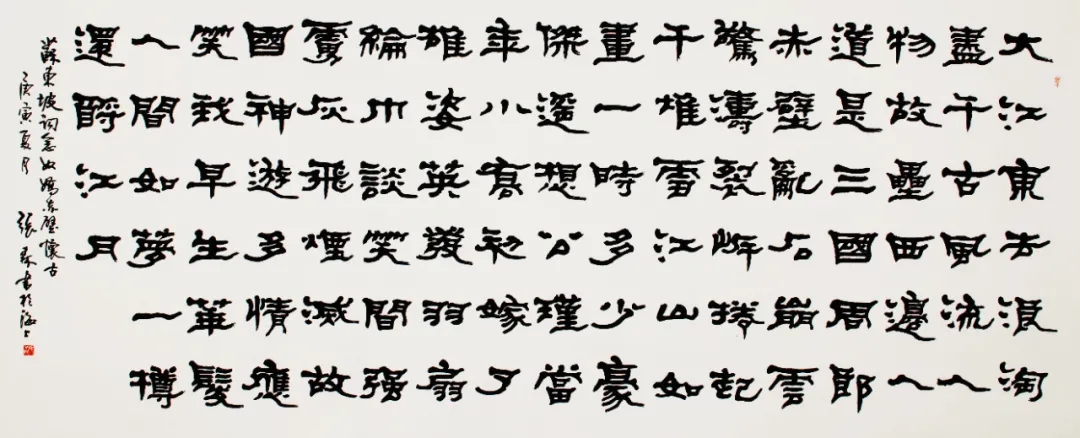 大江東去浪淘
盡千古風流人
物故壘西邊人
道是三國周郎
赤壁亂石崩雲
驚濤裂岸捲起
千堆雪江山如
畫一時多少豪
傑遥想公瑾當
年小喬初嫁了
雄姿英發羽扇
綸巾談笑間强
虜灰飛煙滅故
國神遊多情應
笑我早生華髮
人間如夢一樽
還酹江月
蘇東坡詞念奴嬌赤壁懷古
庚寅夏月 張森書於海上